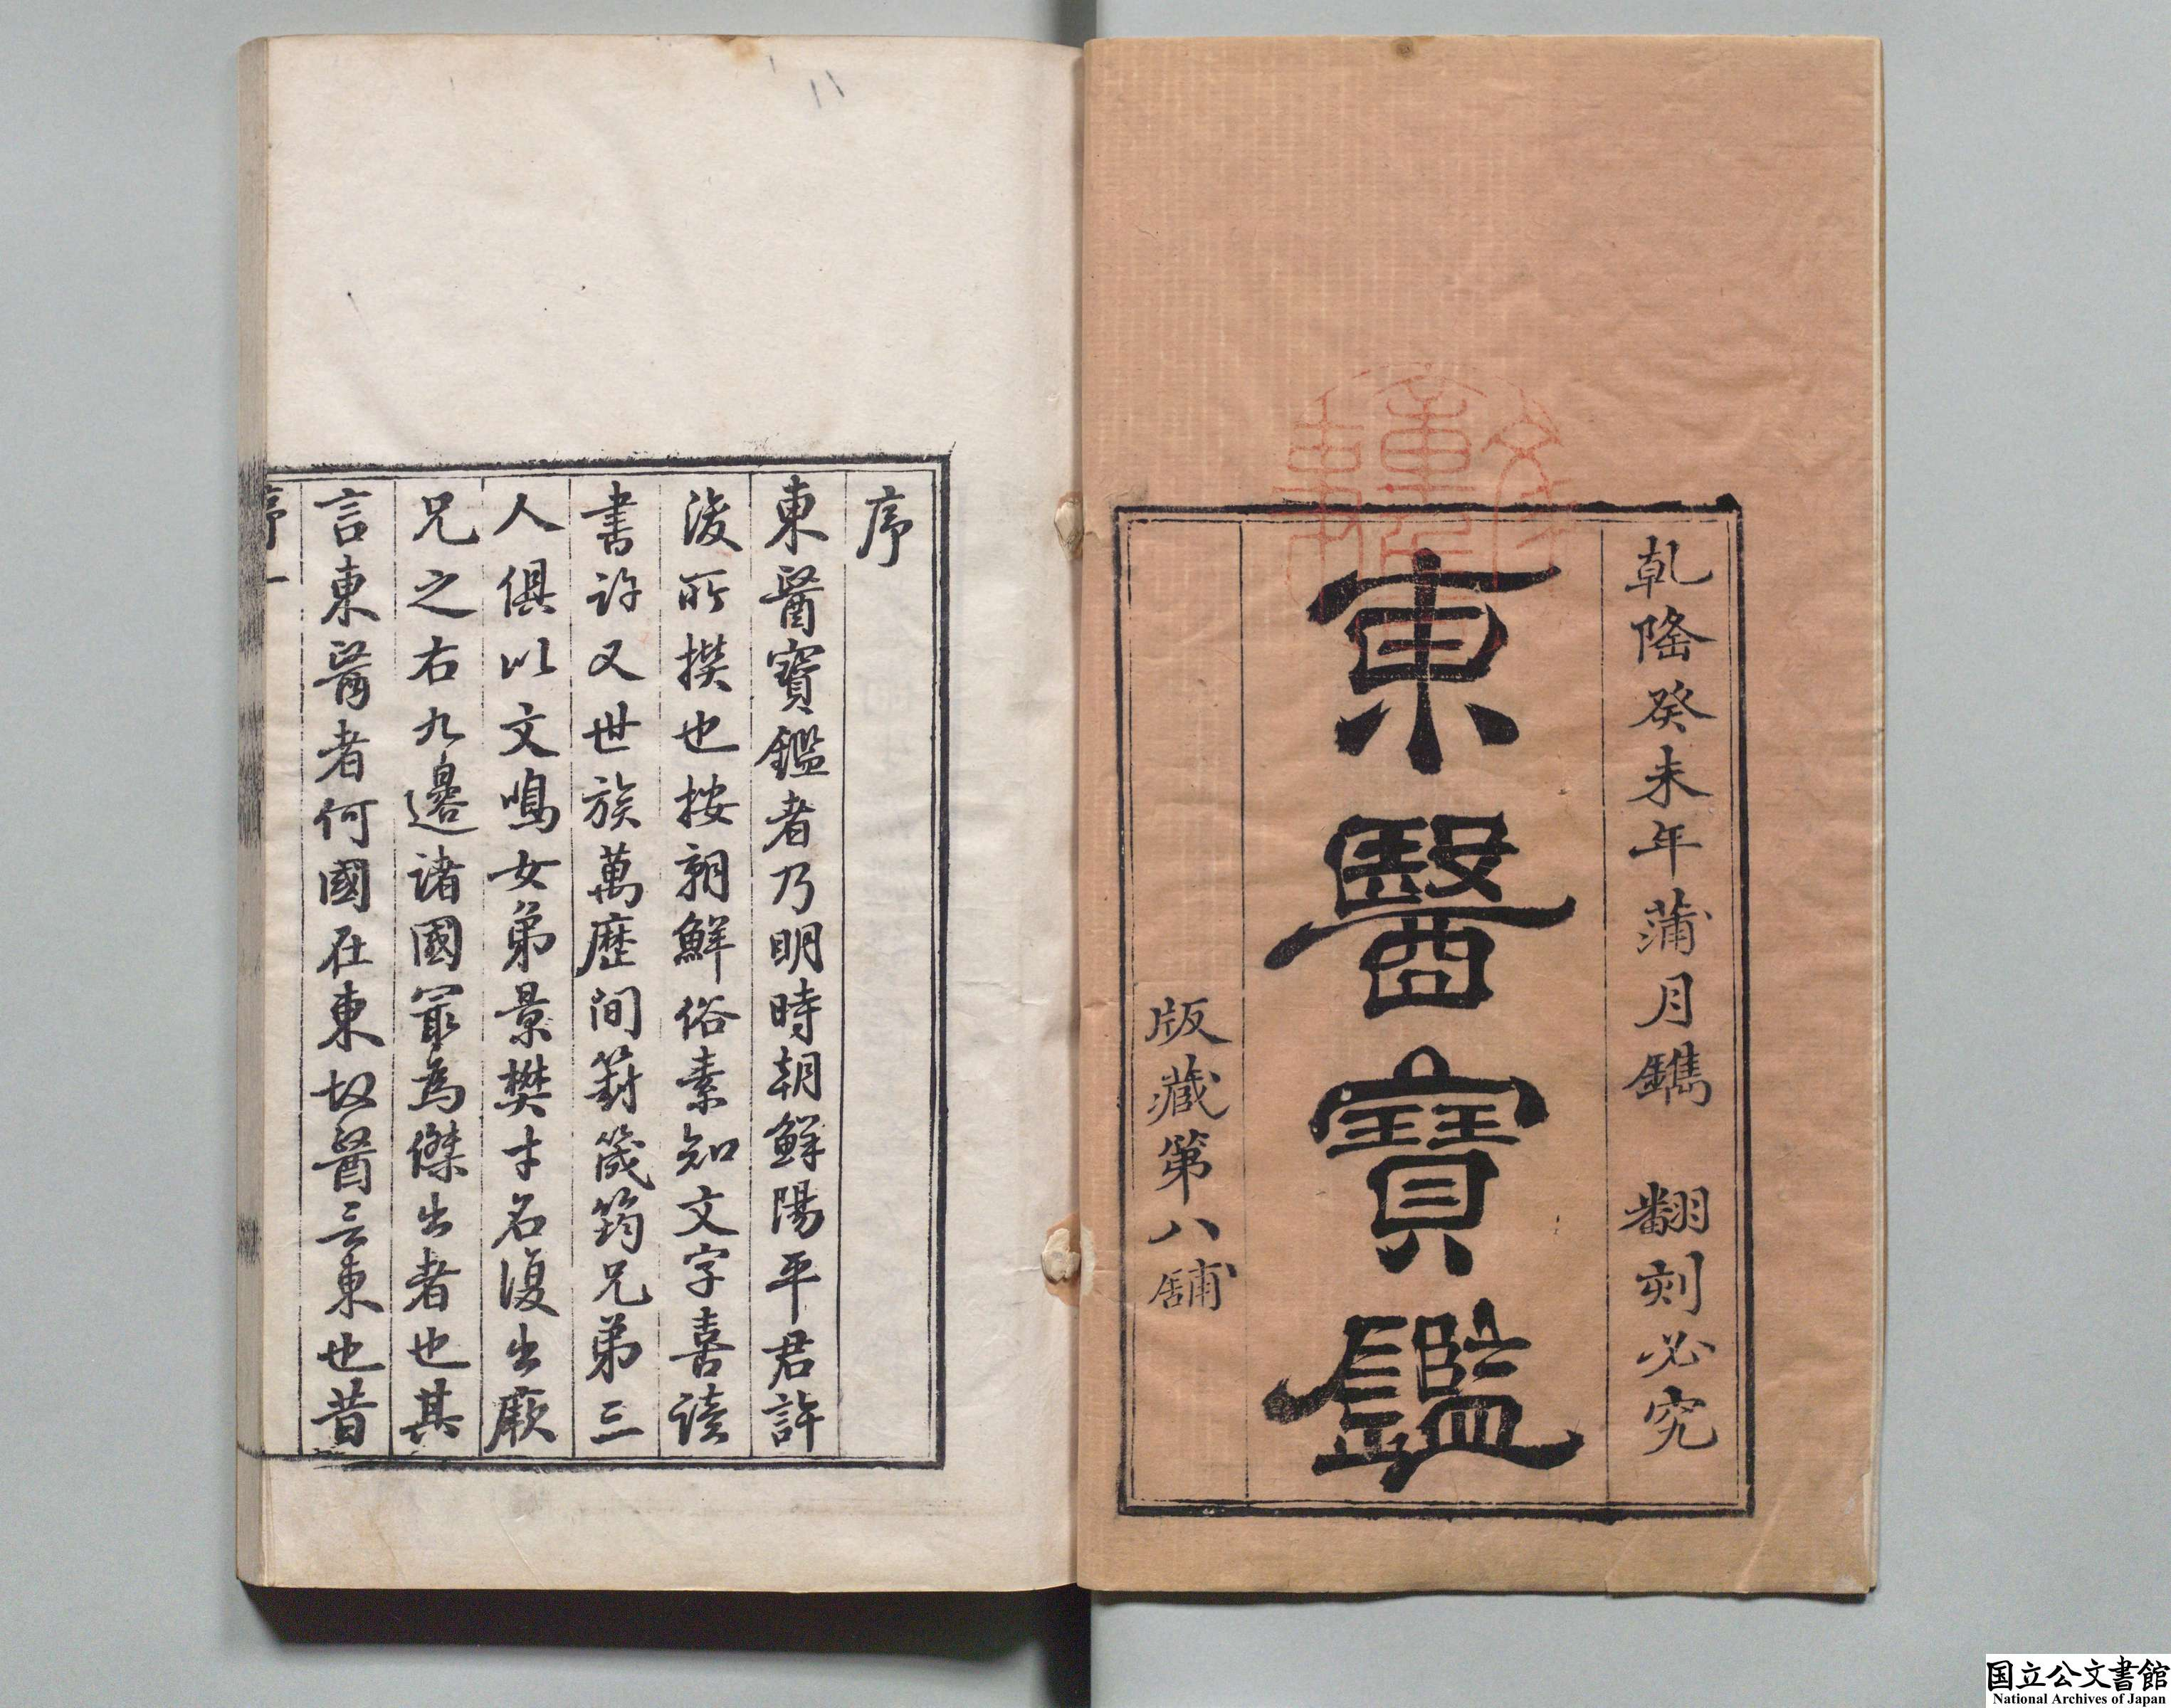 乾隆癸未年蒲月鐫　翻刻必究
東醫寶鑑
版藏第八舖
序
東醫寶鑑者乃明時朝鮮陽平君許
浚所撰也按朝鮮俗素知文字喜读
書许又世族萬歷间篈筬筠兄弟三
人俱以文鳴女弟景樊才名復出厥
兄之右九邊诸國冣為傑出者也其
言東醫者何國在東故醫言東也昔
序一
国立公文書館
National Archives of Japan